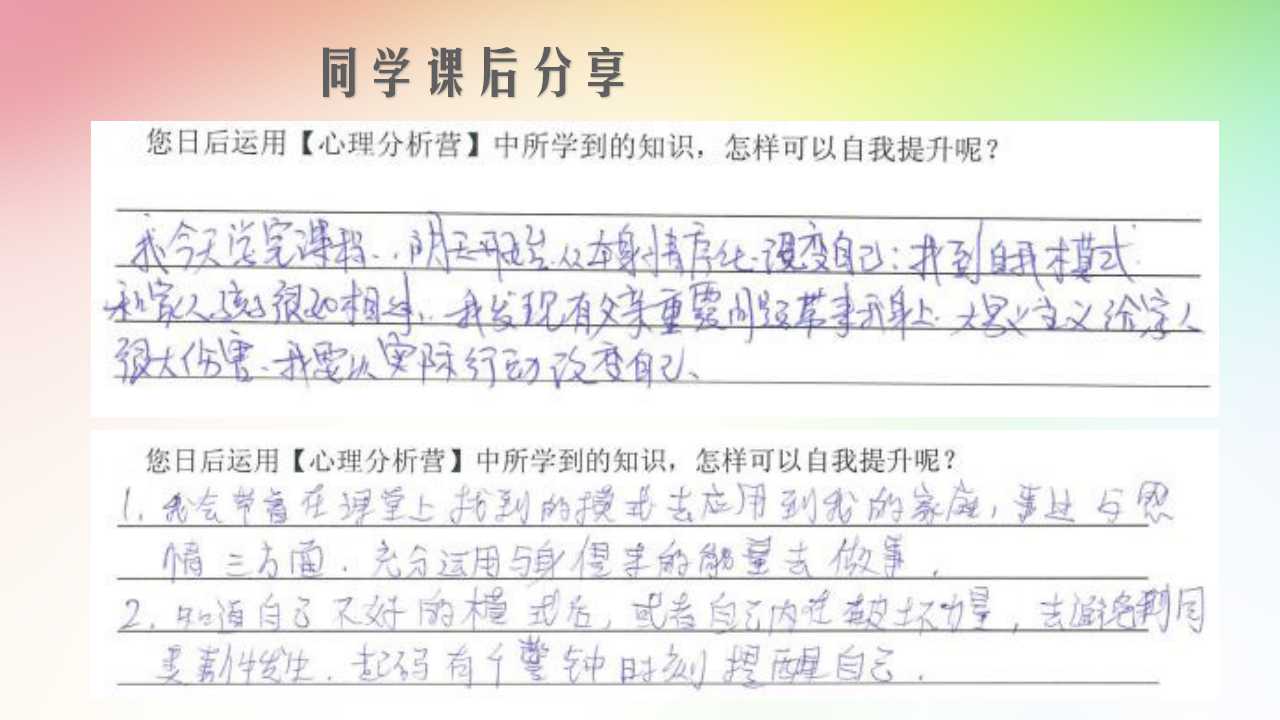 同学课后分享
您日后运用【心理分析营】中所学到的知识，怎样可以自我提升呢？
我今天学完课程、明天开始从本身情序化、改变自己：找到自我本模式
和家人孩子很好相处、我发现有父亲重要问题带事示身上、大男义主义给家人
很大伤害、我要以实际行动改变自己、
您日后运用【心理分析营】中所学到的知识，怎样可以自我提升呢？
1. 我会带着在课堂上找到的模式去应用到我的家庭，事业与感
情三方面．充分运用与身俱来的能量去做事．
2. 知道自己不好的模式后，或者自己内在破坏力量，去避免利同
类事件发生．起码有个警钟时刻提醒自己．